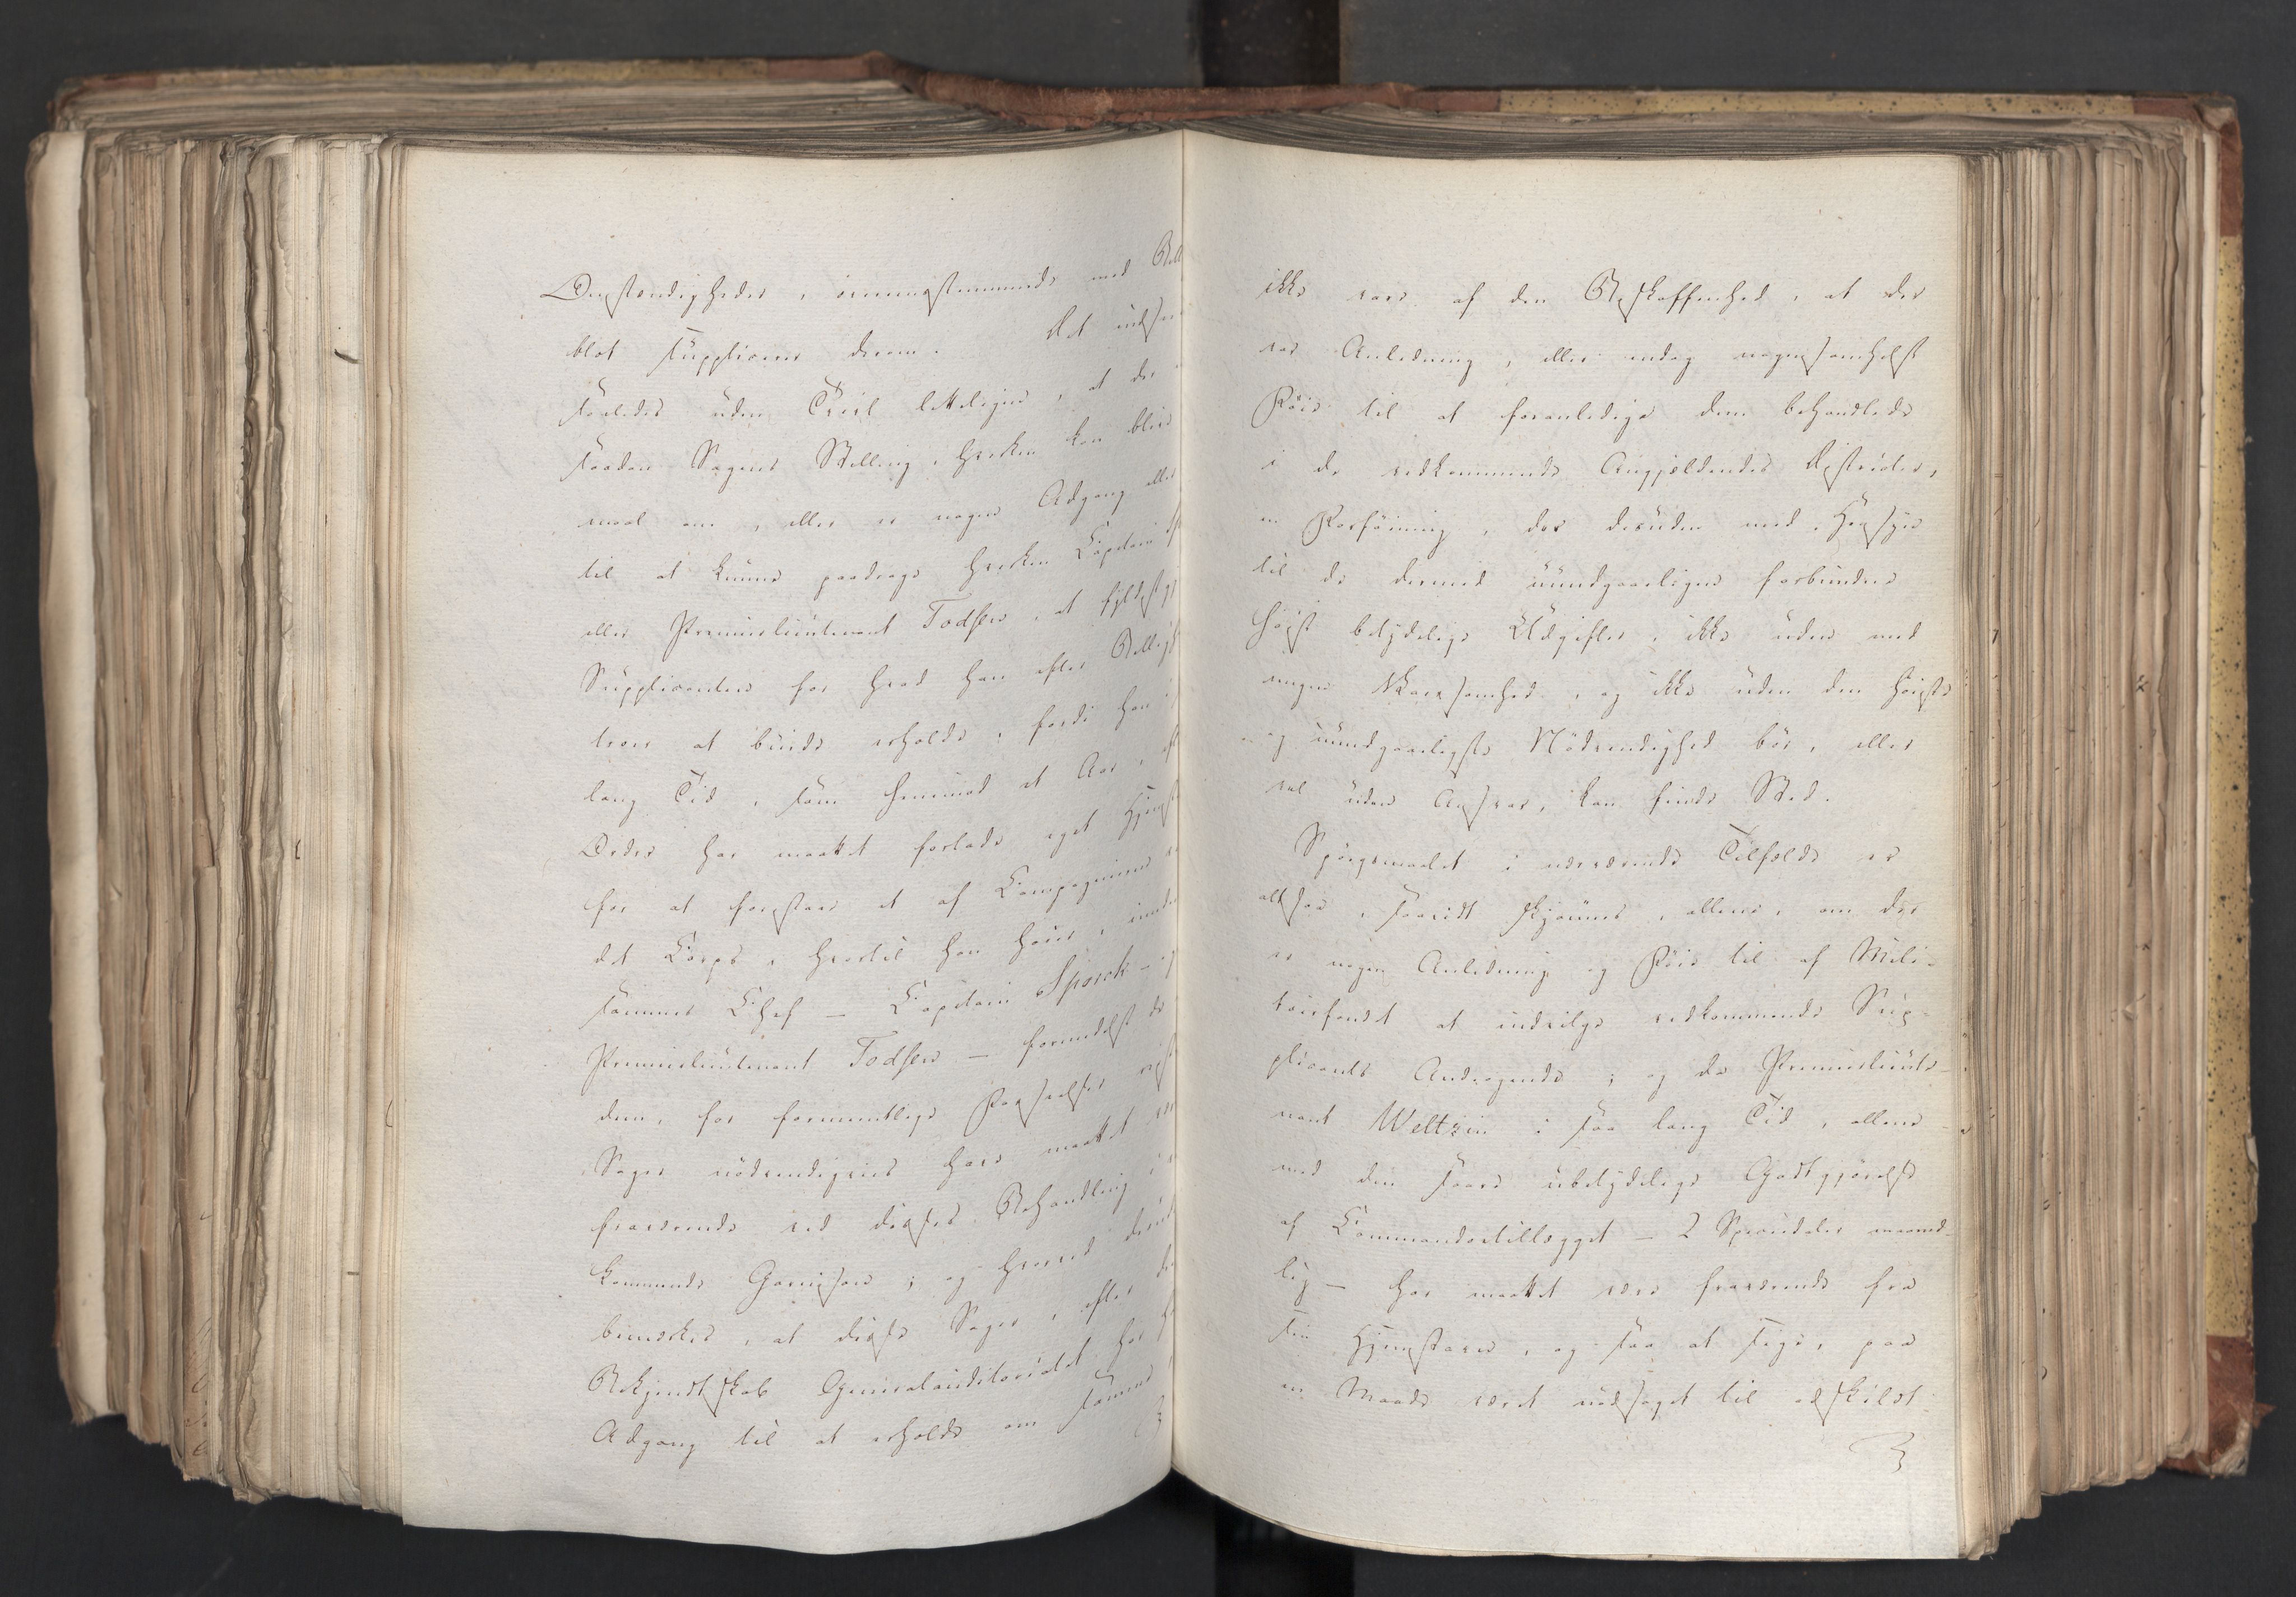 Omstændigheder, overensstemmende med Bill
blot suppliceres derom. Det indsees
saaledes uden Tvivl letteligen, at der
saadan Sagens Stilling, hverken kan blive
maal om, eller er nogen Adgang eller
til at kunne paadrage hverken Capitain
eller Premierlieutenant Todsen, at fyldestgj
Supplicanten for hvad han efter Billigh
troer at burde erholde, fordi han i
lang Tid, som henimod et Aar, eft
Ordre har maattet forlade eget Hjemst
for at forestaae et af Compagnierne v
det Corps, hvortil han hører, under
sammes Chef – Capitain Spørck – og
Premierlieutenant Todsen – formedelst de
dem, for formentlige Forseelser rejste
Sager nødvendigviis have maattet være
fraværende ved disses Behandling i
kommende Garnison; og hvorved desud
bemærkes, at disse Sager, efter de
Bekjendtskab Generalauditoriatet har h
Adgang til at erholde om samme,
ikke vare af den Beskaffenhed, at der
var Anledning, eller endog nogensomhelst
Føie til at foranledige dem behandlede
i de vedkommende Angjældendes Districter,
en Forføining, der desuden med Hensyn
til de dermed uundgaaeligen forbundne
høist betydelige Udgifter, ikke uden med
megen Varsomhed, og ikke uden den høieste
og uundgaaeligste Nødvendighed bør, eller
vel uden Ansvar, kan finde Sted.
Spørgsmaalet i nærværende Tilfælde er
altsaa, saavidt skjønnes, allene, om der
er nogen Anledning og Føie til af Mili-
tairfondet at indvilge vedkommende Sup-
plicants Andragende; og da Premierlieute-
nant Weltzin i saa lang Tid, allene
med den saare ubetydelige Godtgjørelse
af Commandotillægget – 2 Speciedaler maaned-
lig – har maattet være fraværende fra
sin Hjemstavn, og saa at sige, paa
en Maade været nødsaget til adskildt